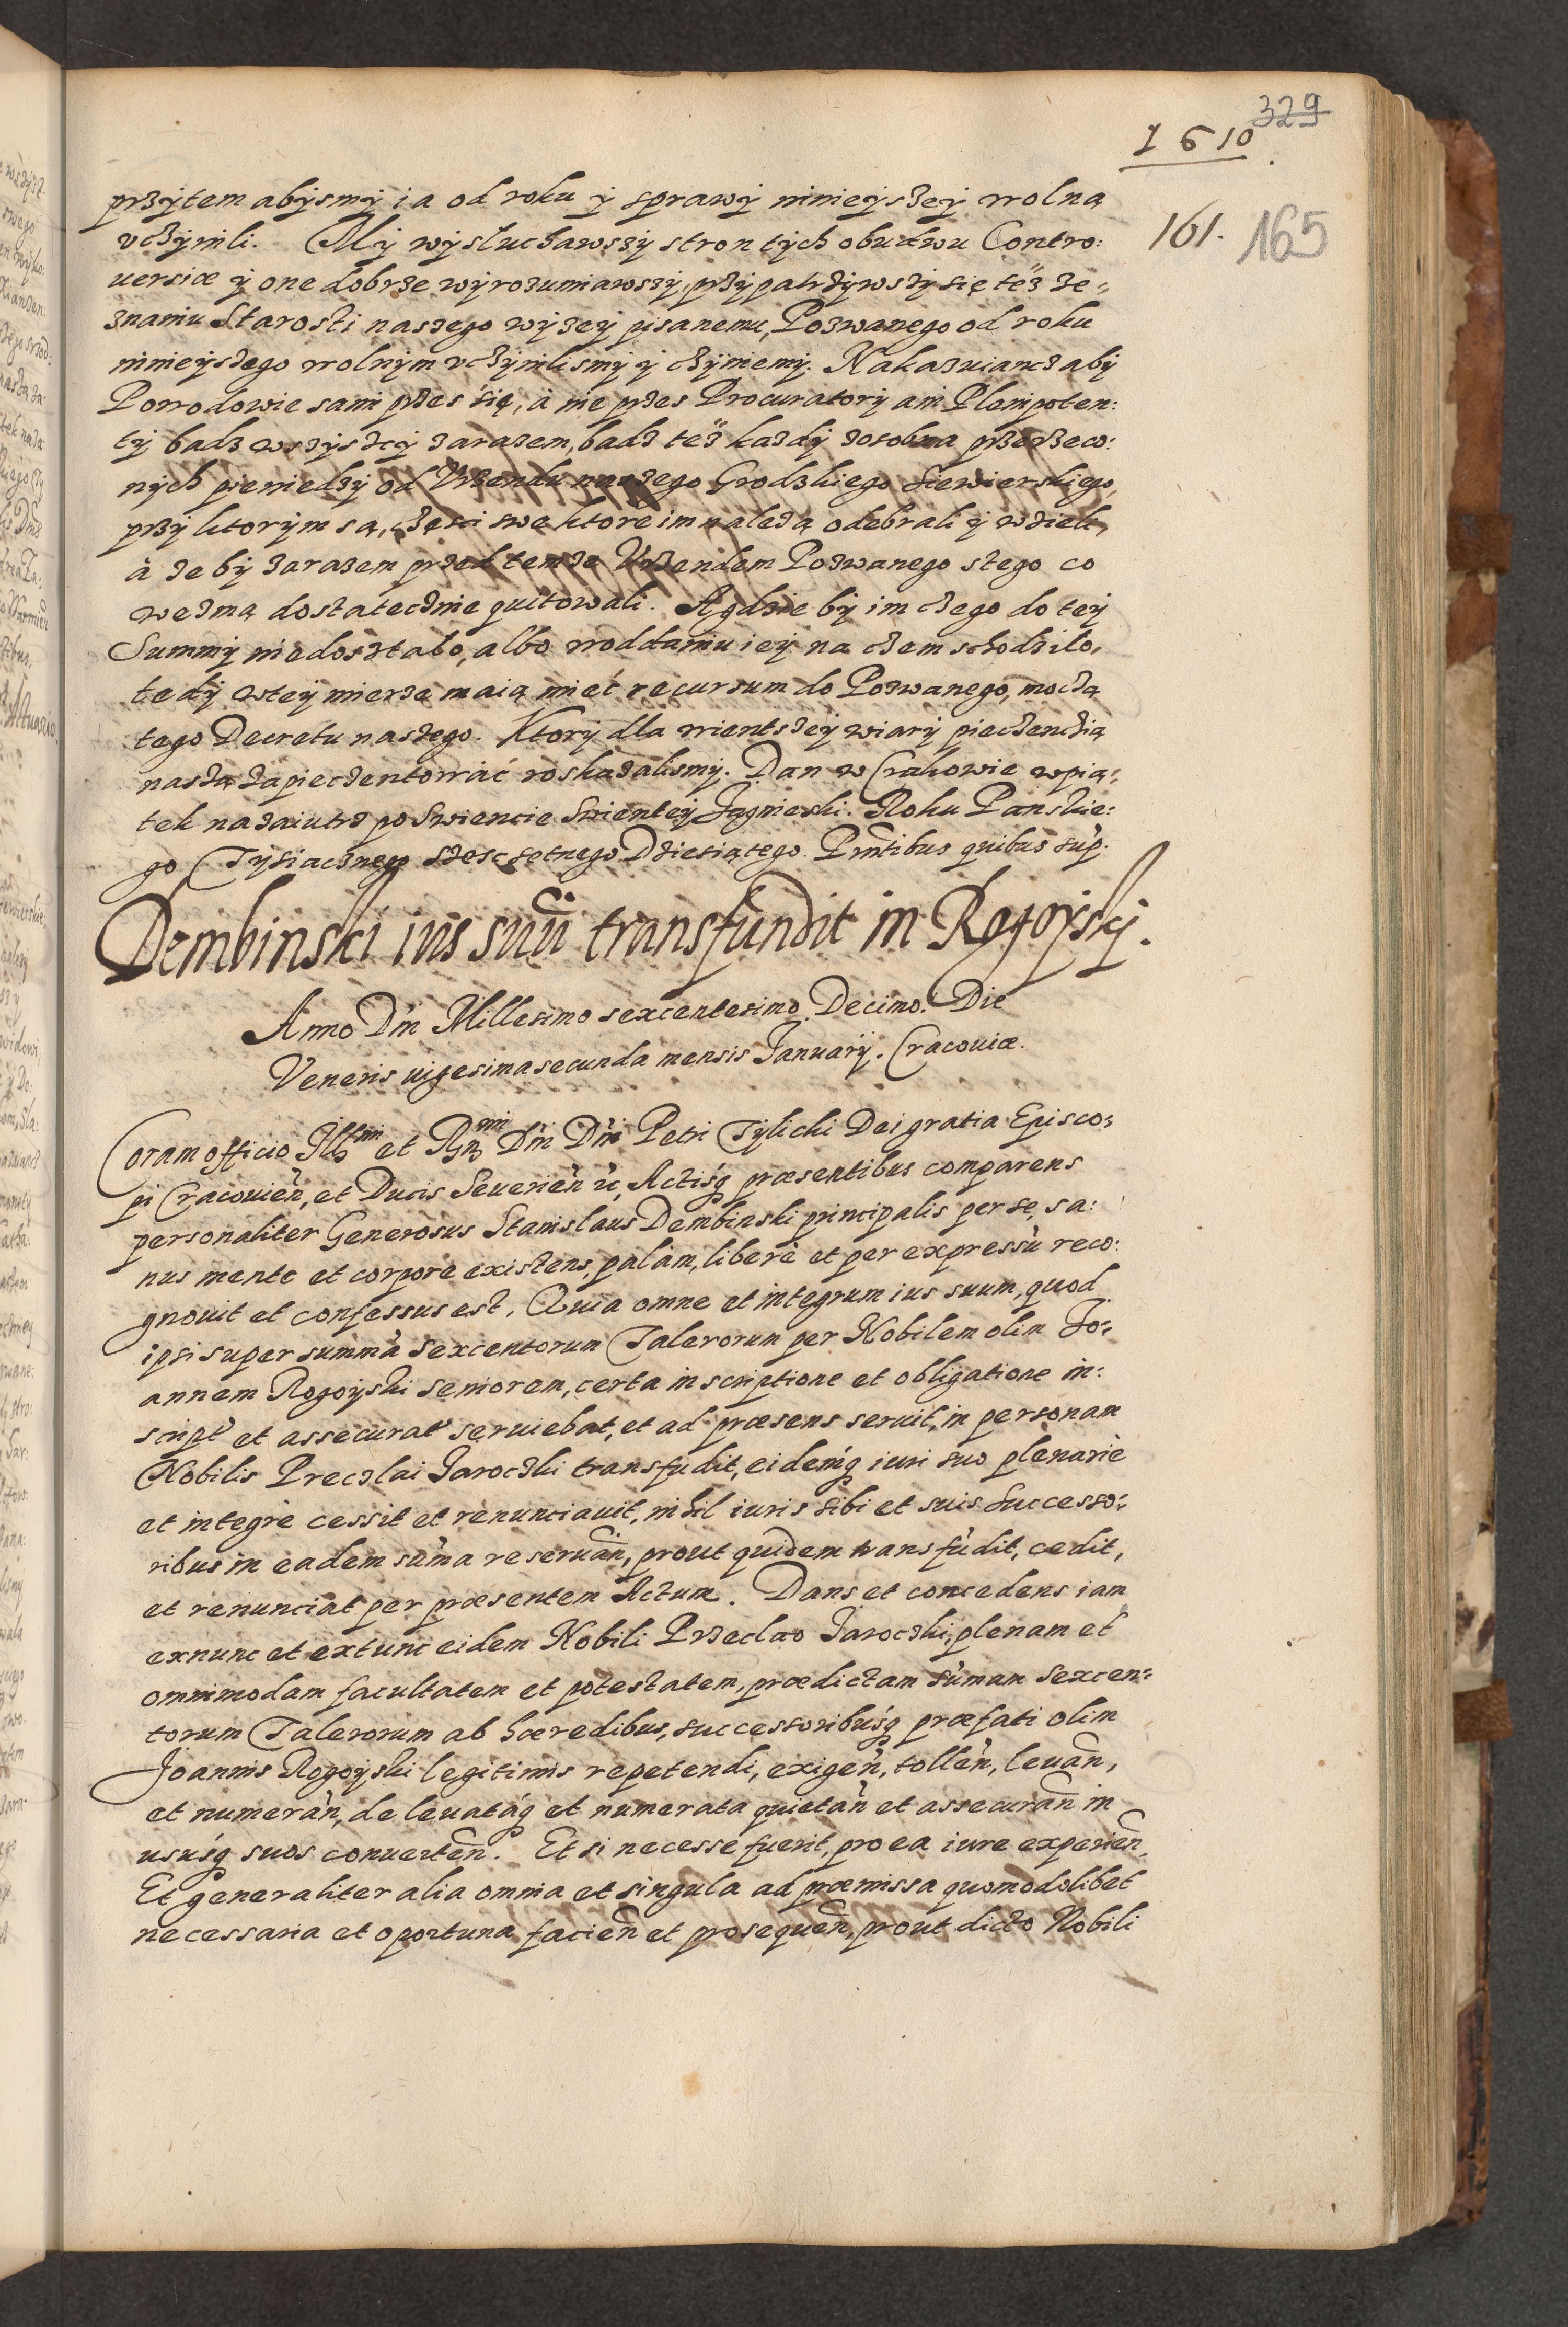 329
1610.
161. 165
przÿtem abÿsmÿ ia od roku ÿ sprawÿ ninieÿszeÿ wolną
vczÿnili. Mÿ wÿsluchawszÿ stron tÿch obudwu Contro:
uersiæ ÿ one dobrze wÿrozumiawszÿ, przÿpatrzÿwszÿ się też ze:
znaniu Starosti naszego wÿzeÿ pisanemu, Pozwanego od roku
ninieÿszego wolnÿm vczÿnilismÿ ÿ czÿniemÿ. Nakazuiancz abÿ
Powodowie sami przes się, à nie przes Procuratorÿ ani Plenipoten:
tÿ badz wszÿstcÿ zarazem, badz też kazdÿ zosobna przerzeco:
nÿch pieniedzÿ od Vrzendu naszego Grodzkiego Siewierskiego,
przÿ ktorÿm są, częsci swe ktore im należą odebrali ÿ wzieli,
à ze bÿ zarazem przed temze Vrzendem Pozwanego stego co
wezmą dostatecznie quitowali. Agdzie bÿ im czego do teÿ
Summÿ niedostalo, albo woddaniu ieÿ na czem schodzilo,
tedÿ wteÿ mierze maią mieć recursum do Pozwanego, moczą
tego Decretu naszego. Ktorÿ dla wientszeÿ wiarÿ pieczenczią
naszą zapieczentować roskazalismÿ. Dan w Crakowie wpią:
tek nazaiutrz po Swiencie Swienteÿ Jagnieski. Roku Panskie:
go Tysiacznego szescsetnego Dziesiątego. Pñtibus quibus sup.
Dembinski ius suũ transfundit in Rogoÿskÿ.
Anno Dñi Millesimo sexcentesimo Decimo. Die
Veneris uigesima secunda mensis Januarÿ. Cracouiæ.
Coram officio Illmi et Rmi Dñi Dñi Petri Tÿlicki Dei gratia Episco:
pi Cracouieñ, et Ducis Seuerieñ ꝛc, Actisq præsentibus comparens
personaliter Generosus Stanislaus Dembinski principalis per se, sa:
nus mente et corpore existens, palàm, liberè et per expressũ reco:
gnouit et confessus est. Quia omne et integrum ius suum, quod
ipsi super summã sexcentorum Talerorum per Nobilem olim Jo:
annem Rogoÿski seniorem, certa inscriptione et obligatione in:
script et assecurat seruiebat, et ad præsens seruit, in personam
Nobilis Preczlai Jaroczki transfudit, eidemq iuri suo plenariè
et integrè cessit et renunciauit, nihil iuris sibi et suis Successo:
ribus in eadem sũma reseruañ, prout quidem transfudit, cedit,
et renunciat per præsentem Actum. Dans et concedens iam
exnunc et extunc eidem Nobili Przeclao Jaroczki, plenam et
omnimodam facultatem et potestatem, prædictam sũmam sexcen:
torum Talerorum ab hæredibus, successoribusq præfati olim
Joannis Rogoÿski legitimis repetendi, exigeñ, tolleñ, leuañ,
et numerañ, de leuataq et numerata quietañ et assecurañ in
ususq suos conuerteñ. Et si necesse fuerit, pro ea iure experieñ.
Et generaliter alia omnia et singula ad præmissa quomodolibet
necessaria et oportuna facieñ et prosequeñ, prout dicto Nobili